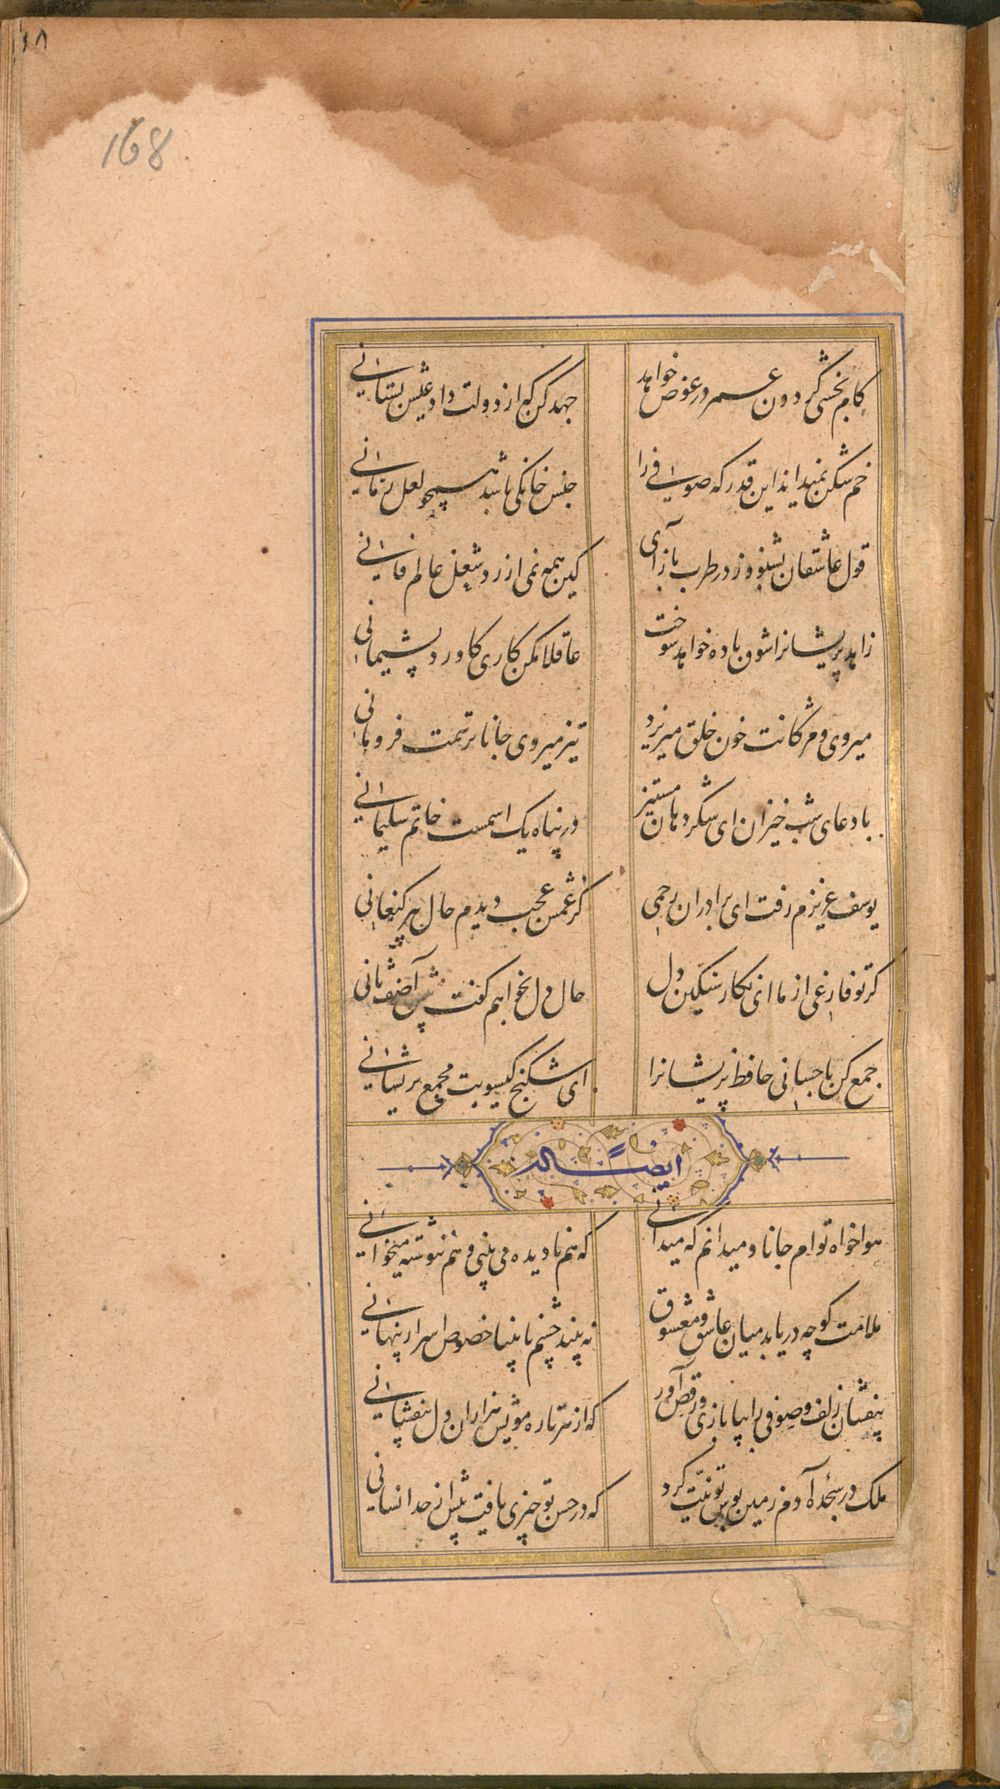 168
کام بخشی گردون عمر در عوض خواهد جهد کن که از دولت داد عیش بستانی
خم شکن نمیداند این قدر که صوفی را جنس خانگی باشد همچو لعل رمانی
قول عاشقان بشنو وز در طرب باز آی کین همه نمی ارزد شغل عالم فانی
زاهد پریشانرا شوق باده خواهد سوخت عاقلا مکن کاری کاورد پشیمانی
میروی و مژگانت خون خلق میریزد تیز میروی جانا ترسمت فرومانی
با دعای شب خیزان ای شکر دهان مستیز در پناه یک اسمست خاتم سلیمانی
یوسف عزیزم رفت ای برادران رحمی کز غمش عجب دیدم حال پیر کنعانی
گر تو فارغی از ما ای نگار سنگین دل حال دل بخواهم گفت پیش آصف ثانی
جمع کن باحسانی حافظ پریشانرا ای شکنج گیسویت مجمع پریشانی
ایضاً له
هوا خواه توام جانا و میدانم که میدانی که هم نادیده می بینی و هم ننوشته میخوانی
ملامت گو چه دریابد میان عاشق و معشوق نه بیند چشم نابینا خصوص اسرار پنهانی
بیفشان زلف و صوفی را بپا بازی و رقص آور که از هر تاره مویش هزاران دل بیفشانی
ملک در سجدهٔ آدم زمین بوس تو نیت کرد که در حسن تو چیزی یافت بیش از حد انسانی